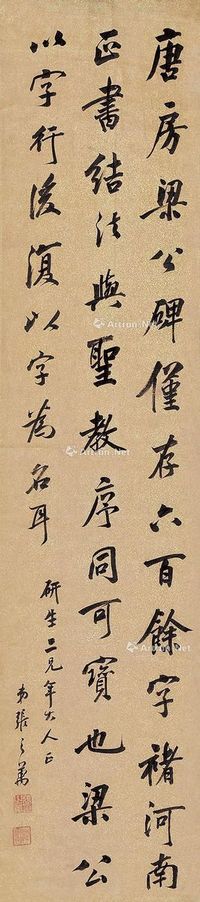 唐房梁公碑僅存六百餘字褚河南
正書結法與聖教序同可寶也梁公
以字行後復以字為名耳
研生二兄年大人正
弟張之萬
Artron.Net